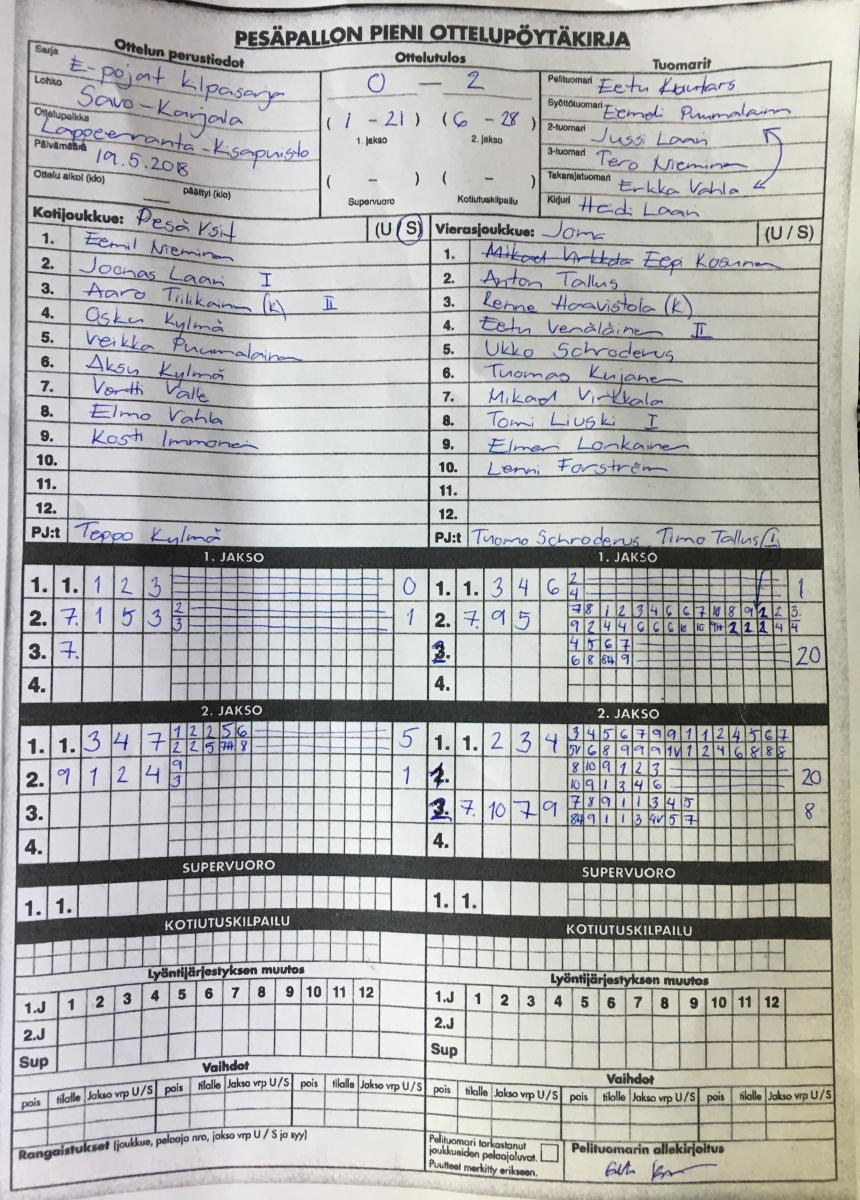 PESÄPALLON PIENI OTTELUPÖYTÄKIRJA
Ottelun perustiedot
Sarja E-pojat kilpasarja
Lohko Savo-Karjala
Ottelupaikka Lappeenranta-Kisapuisto
Päivämäärä 19.5.2018
Ottelu alkoi (klo) — päättyi (klo)
Ottelutulos
0 — 2
( 1 - 21 ) ( 6 - 28 )
1. jakso 2. jakso
( - ) ( - )
Supervuoro Kotiutuskilpailu
Tuomarit
Pelituomari Eetu
Syöttötuomari Eemeli Puumalainen
2-tuomari Jussi Laari
3-tuomari Tero Nieminen
Takarajatuomari Erkka Vahla
Kirjuri Heidi Laari
Kotijoukkue: Pesä Ysit (U / S)
1. Eemil Nieminen
2. Joonas Laari I
3. Aaro Tiilikainen (K) II
4. Osku Kylmä
5. Veikka Puumalainen
6. Aksu Kylmä
7. Vertti Valle
8. Elmo Vahla
9. Kosti Immonen
10.
11.
12.
PJ:t Teppo Kylmä
Vierasjoukkue: Joma (U / S)
1. Mikael Virkkala Eepi Kosunen
2. Anton Tallus
3. Renne Haavistola (K)
4. Eetu Venäläinen II
5. Ukko Schroderus
6. Tuomas Kujanen
7. Mikael Virkkala
8. Tomi Liuski I
9. Elmeri Lonkainen
10. Lenni Forström
11.
12.
PJ:t Tuomo Schroderus Timo Tallus (I)
1. JAKSO
1. 1. 1 2 3 0
2. 7. 1 5 3 2 1
3
3. 7.
4.
1. JAKSO
1. 1. 3 4 6 2 1
4
2. 7. 9 5 7 8 1 2 3 4 6 6 7 10 8 9 1 2 2 3.
9 2 4 4 6 6 6 10 10 9H 2 2 2 4 4
3. 4 5 6 7 20
6 8 8H 9
4.
2. JAKSO
1. 1. 3 4 7 1 2 2 5 6 5
2 2 5 7H 8
2. 9 1 2 4 9 1
3
3.
4.
2. JAKSO
1. 1. 2 3 4 3 4 5 6 7 9 9 1 1 2 4 5 6 7
5V 6 8 9 9 9 1V 1 2 4 6 8 8 8
2. 8 10 9 1 2 3 20
10 9 1 3 4 6
3. 7. 10 7 9 7 8 9 1 1 3 4 5 8
8H 9 1 1 3 4V 5 7
4.
SUPERVUORO
1. 1.
SUPERVUORO
1. 1.
KOTIUTUSKILPAILU
KOTIUTUSKILPAILU
Lyöntijärjestyksen muutos
1.J 1 2 3 4 5 6 7 8 9 10 11 12
2.J
Sup
Lyöntijärjestyksen muutos
1.J 1 2 3 4 5 6 7 8 9 10 11 12
2.J
Sup
Vaihdot
pois tilalle Jakso vrp U / S pois tilalle Jakso vrp U / S pois tilalle Jakso vrp U / S
Vaihdot
pois tilalle Jakso vrp U / S pois tilalle Jakso vrp U / S pois tilalle Jakso vrp U / S
Rangaistukset (joukkue, pelaaja nro, jakso vrp U / S ja syy)
Pelituomari tarkastanut
joukkueiden pelaajaluvat.
Puutteet merkitty erikseen.
Pelituomarin allekirjoitus